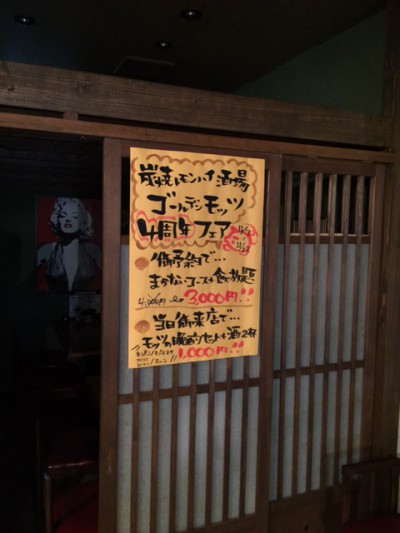 炭焼レモンハイ酒場
ゴールデンモッツ
4周年フェア
御予約で…
まかないコース+食べ放題
4,000円 3,000円!!
当日御来店で…
モッツの晩酌セット+酒2杯
1,000円!!